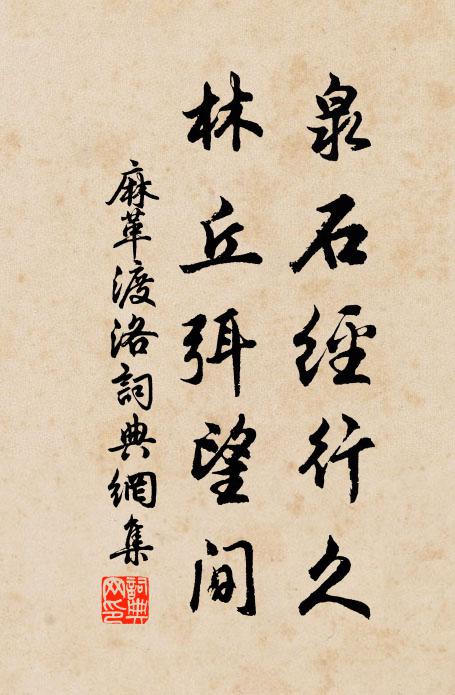 泉石經行久
林丘弭望間
麻革渡洛詞典網集
詞典網印